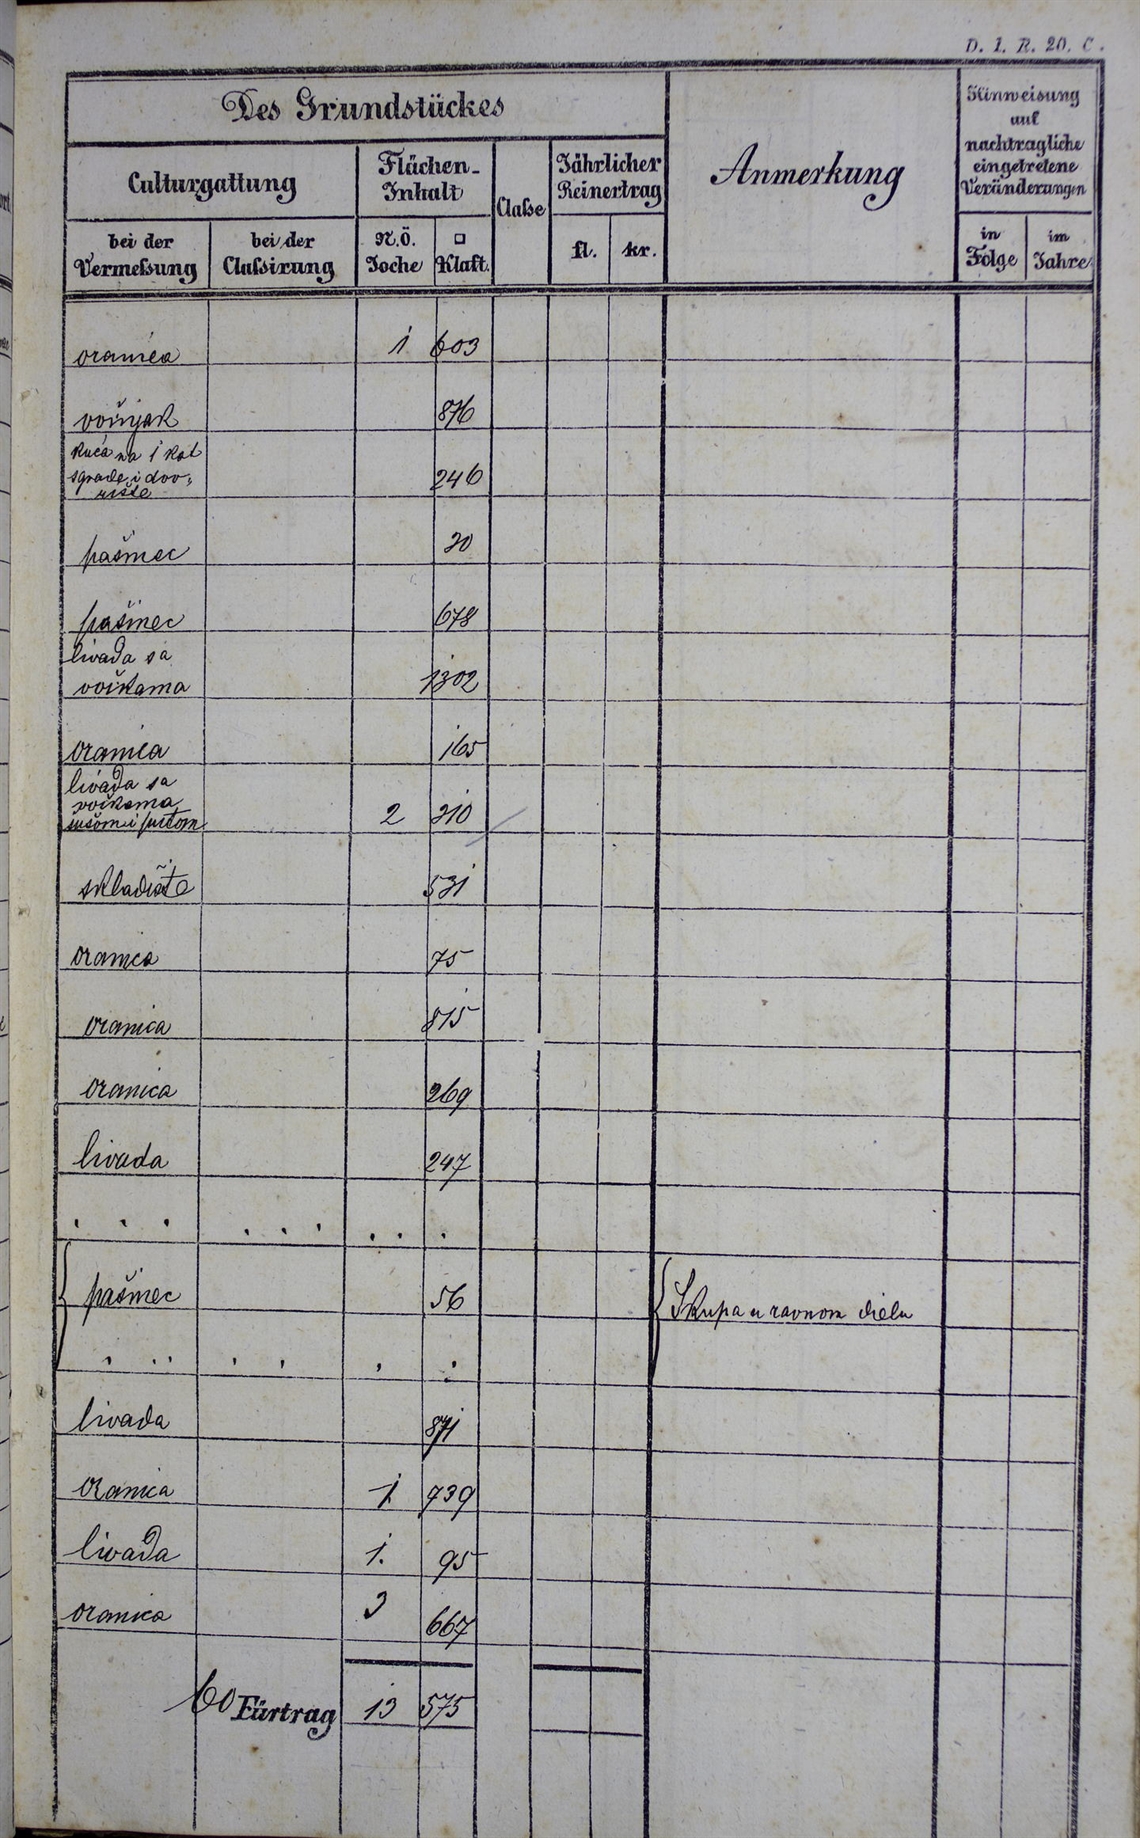 D. 1. R. 20. C.
Des Grundstückes
Anmerkung
Hinweisung
auf
nachtragliche
eingetretene
Veränderungen
Culturgattung
Flächen-
Inhalt
Claſse
Jährlicher
Reinertrag
bei der
Vermeſsung
bei der
Claſsirung
N.Ö.
Joche
□
Klaft.
fl.
kr.
in
Folge
im
Jahre
oranica 1 603
voćnjak 876
kuća na 1 kat
sgrade i dvo-
rište 246
pašinec 20
pašinec 678
livada sa
voćkama 1302
oranica 165
livada sa
voćkama
šušom i putom 2 210
skladište 531
oranica 75
oranica 815
oranica 269
livada 247
pašinec 56 Skupa u ravnom dielu
livada 871
oranica 1 739
livada 1. 95
oranica 3 667
60 Fürtrag 13 575